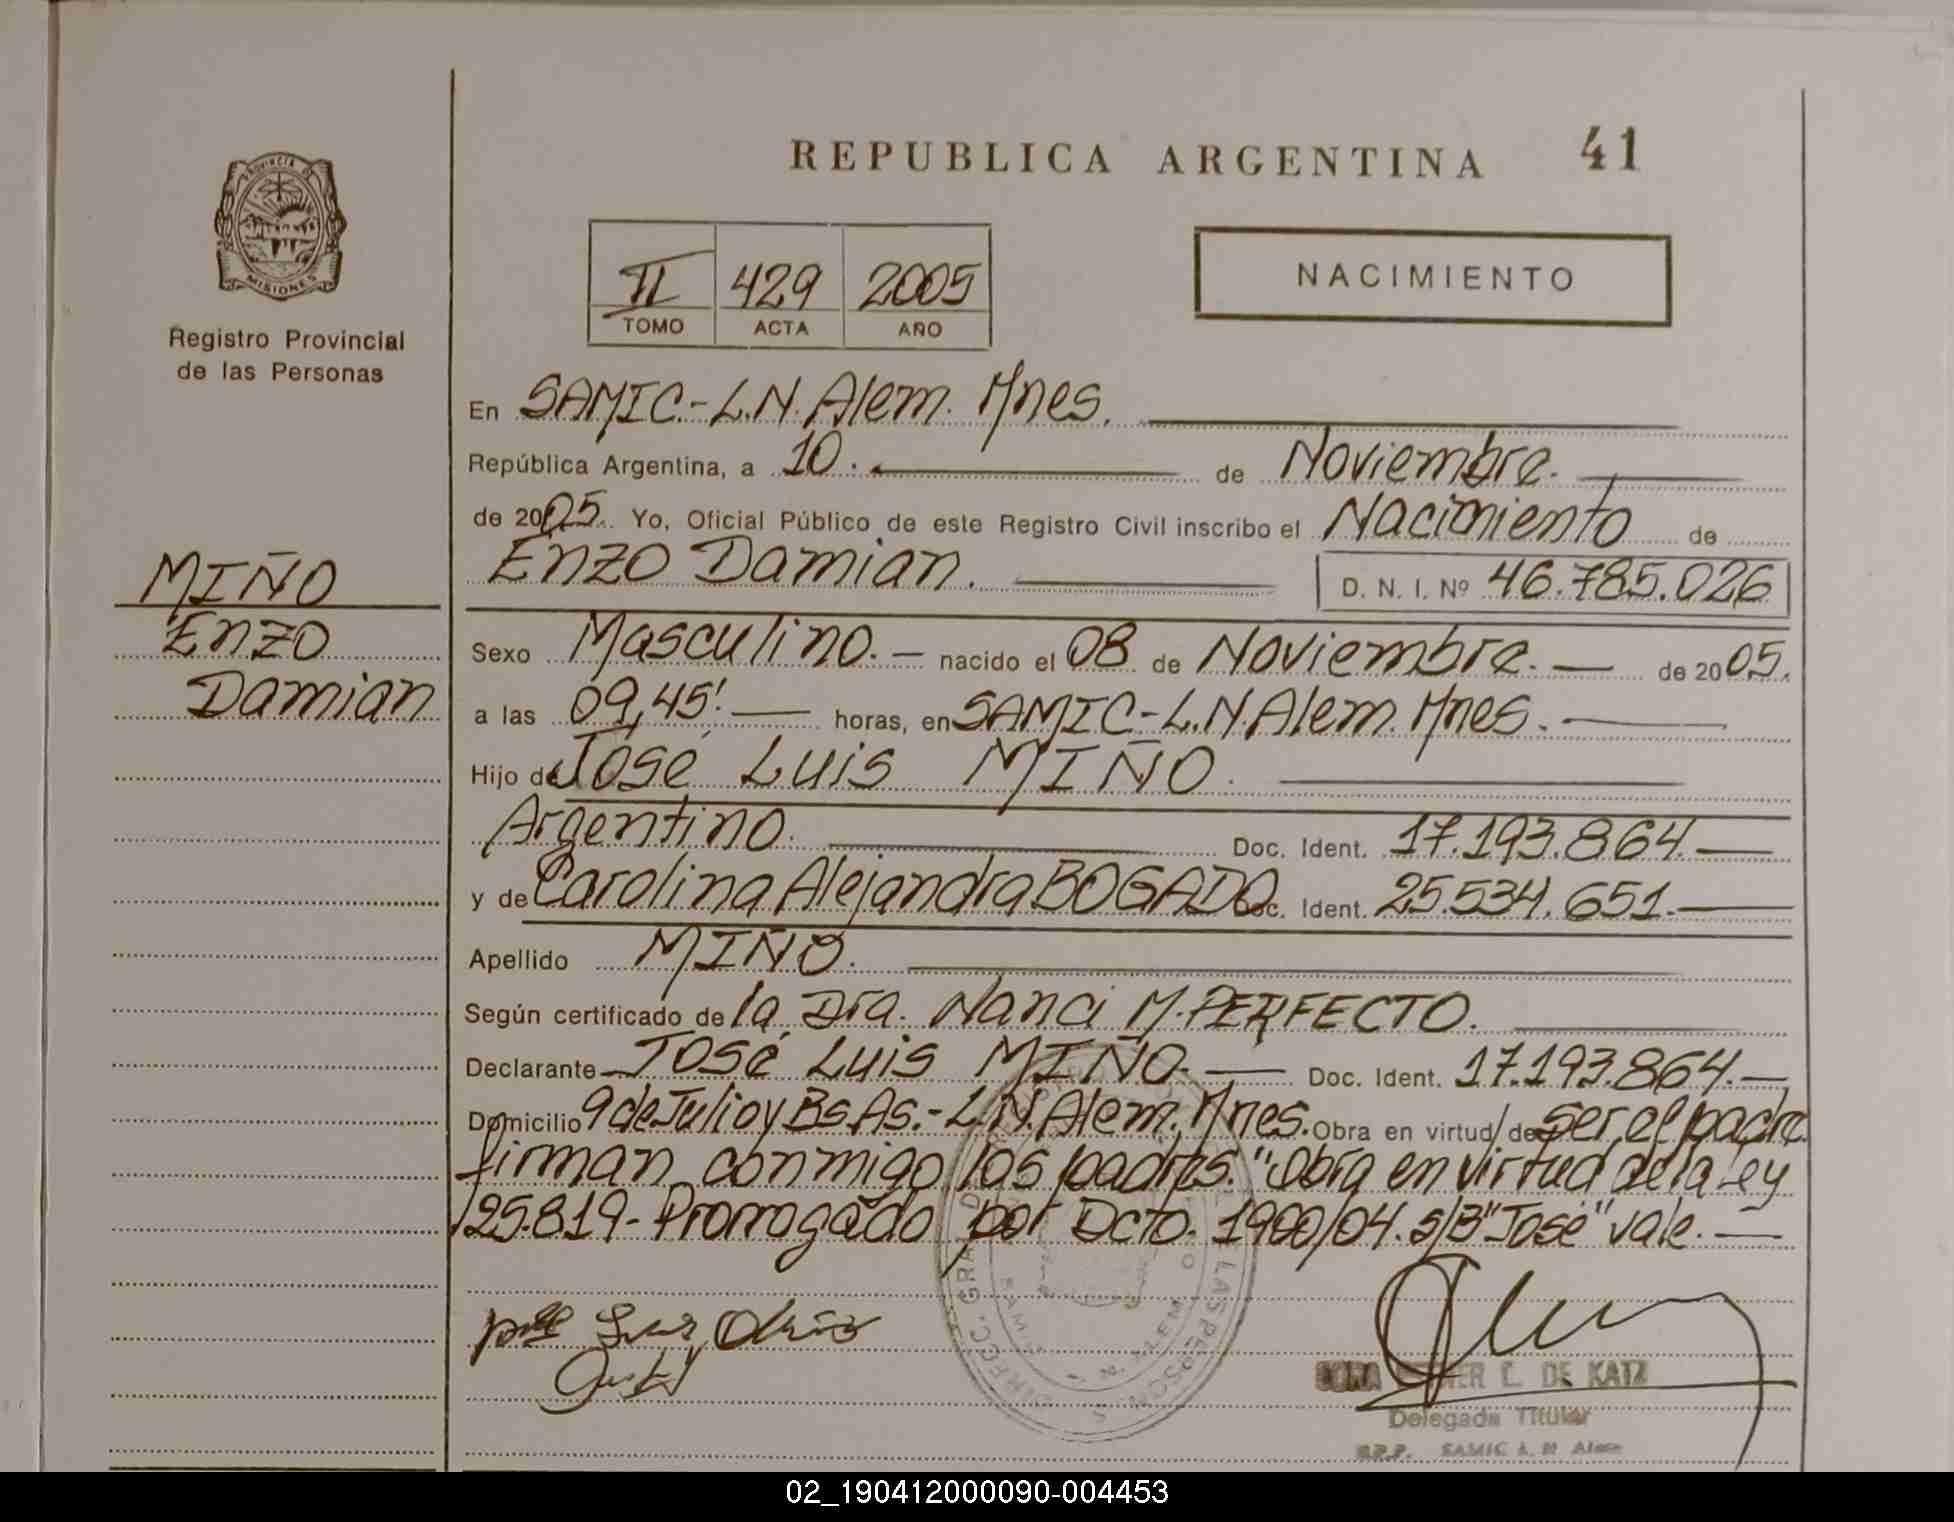 REPUBLICA ARGENTINA 41
PROVINCIA DE
MISIONES
Registro Provincial
de las Personas
II 429 2005
TOMO ACTA AÑO
NACIMIENTO
En SAMIC.- L.N. Alem. Mnes.
República Argentina, a 10. de Noviembre.
de 2005. Yo, Oficial Público de este Registro Civil inscribo el Nacimiento de
Enzo Damian. D. N. I. Nº 46.785.026
MIÑO
Enzo
Damian
Sexo Masculino.- nacido el 08 de Noviembre.- de 2005.
a las 09,45'.- horas, en SAMIC-L.N.Alem. Mnes.-
Hijo de José Luis MIÑO.
Argentino. Doc. Ident. 17.193.864.-
y de Carolina Alejandra BOGADO Doc. Ident. 25.534.651.-
Apellido MIÑO.
Según certificado de la Dra. Nanci M. PERFECTO.
Declarante José Luis MIÑO.- Doc. Ident. 17.193.864.-
Domicilio 9 de Julio y Bs.As.- L.N.Alem. Mnes. Obra en virtud de ser el padre
firman conmigo los padres. "Obra en virtud de la Ley
25.819- Prorrogado por Dcto. 1900/04. s/B "José" vale.-
DE KATZ
Delegada Titular
R.P.P. SAMIC L. N Alem
02_190412000090-004453